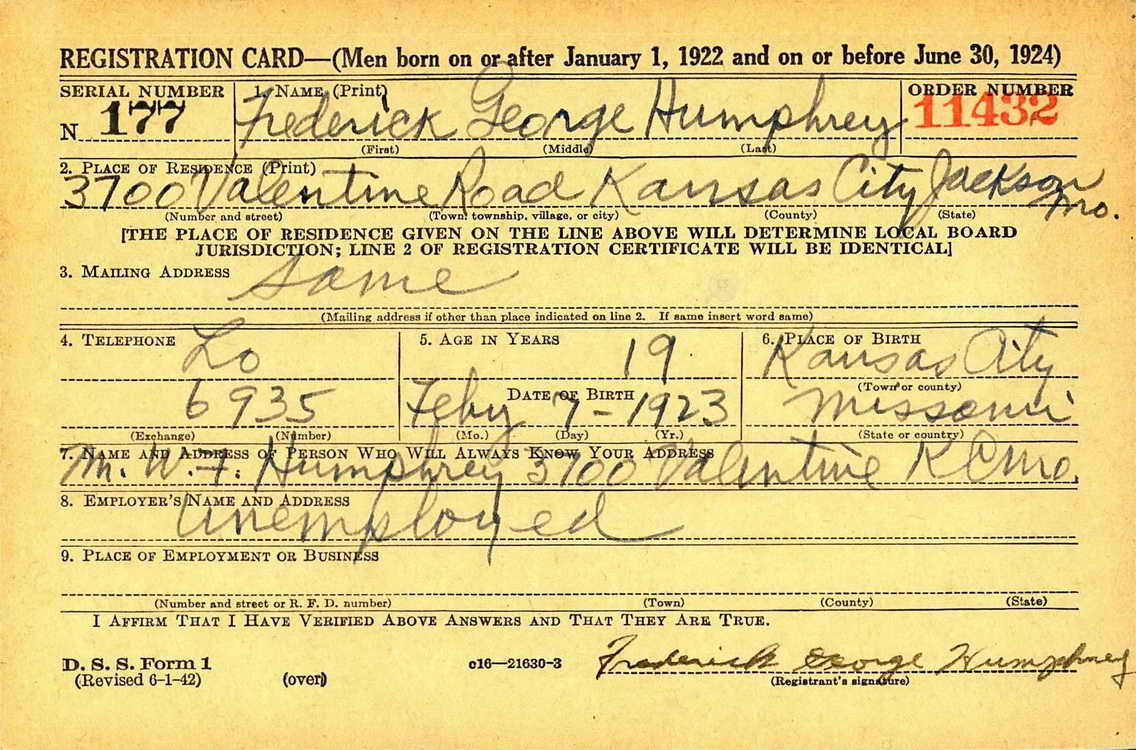 REGISTRATION CARD—(Men born on or after January 1, 1922 and on or before June 30, 1924)
SERIAL NUMBER 1. NAME (Print) ORDER NUMBER
N 177 Frederick George Humphrey 11432
(First) (Middle) (Last)
2. PLACE OF RESIDENCE (Print)
3700 Valentine Road Kansas City Jackson Mo.
(Number and street) (Town, township, village, or city) (County) (State)
[THE PLACE OF RESIDENCE GIVEN ON THE LINE ABOVE WILL DETERMINE LOCAL BOARD
JURISDICTION; LINE 2 OF REGISTRATION CERTIFICATE WILL BE IDENTICAL]
3. MAILING ADDRESS
Same
(Mailing address if other than place indicated on line 2. If same insert word same)
4. TELEPHONE 5. AGE IN YEARS 6. PLACE OF BIRTH
Lo 19 Kansas City
DATE OF BIRTH (Town or county)
6935 Feby 7-1923 Missouri
(Exchange) (Number) (Mo.) (Day) (Yr.) (State or country)
7. NAME AND ADDRESS OF PERSON WHO WILL ALWAYS KNOW YOUR ADDRESS
Mr. W. F. Humphrey 3700 Valentine K C Mo.
8. EMPLOYER'S NAME AND ADDRESS
Unemployed
9. PLACE OF EMPLOYMENT OR BUSINESS
(Number and street or R. F. D. number) (Town) (County) (State)
I AFFIRM THAT I HAVE VERIFIED ABOVE ANSWERS AND THAT THEY ARE TRUE.
D. S. S. Form 1 c16—21630-3 Frederick George Humphrey
(Revised 6-1-42) (over) (Registrant's signature)